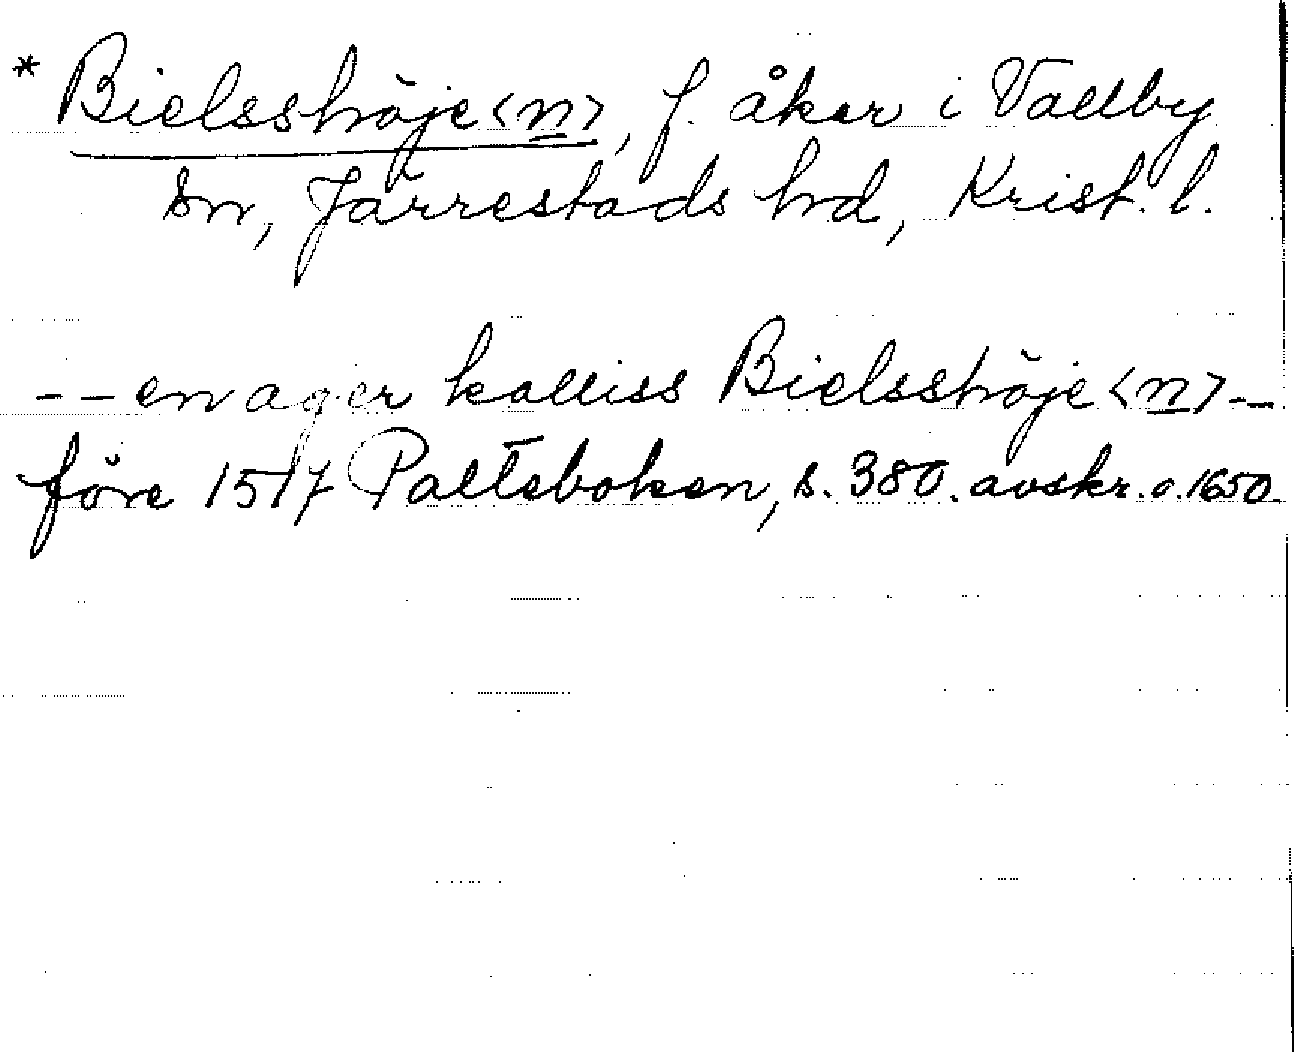 * Bielsshöje<n>, f. åker i Vallby
sn, Järrestads hrd, Krist. l.
-- en ager kalliss Bielsshöje<n> --
före 1517 Palteboken, s. 380. avskr. o. 1650